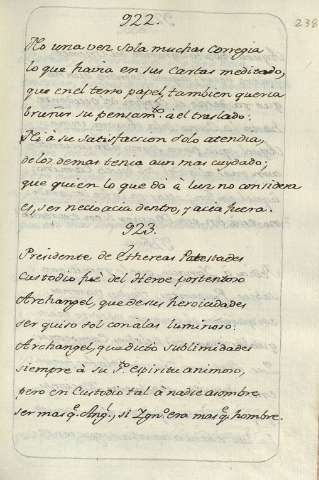 922.
238
No una vez sola muchas corregia
lo que havia en sus Cartas meditado,
que en el terso papel, tambien queria
bruñir su pensam.to a el traslado.
Ni à su satisfaccion solo atendia,
de los demas tenia aun mas cuydado;
que quien lo que dà à luz no considera
es, ser necio acia dentro, y acia fuera.
923.
Presidente de Ethereas Potestades
Custodio fuè del Heroe portentoso
Archangel, que de sus heroicidades
ser quiso sol con alas luminoso.
Archangel, que dictò sublimidades
siempre à su S.to espiritu animoso,
pero en Custodio tal à nadie asombre
ser mas q.e Ang.l, si Ygn.o era mas q.e hombre.